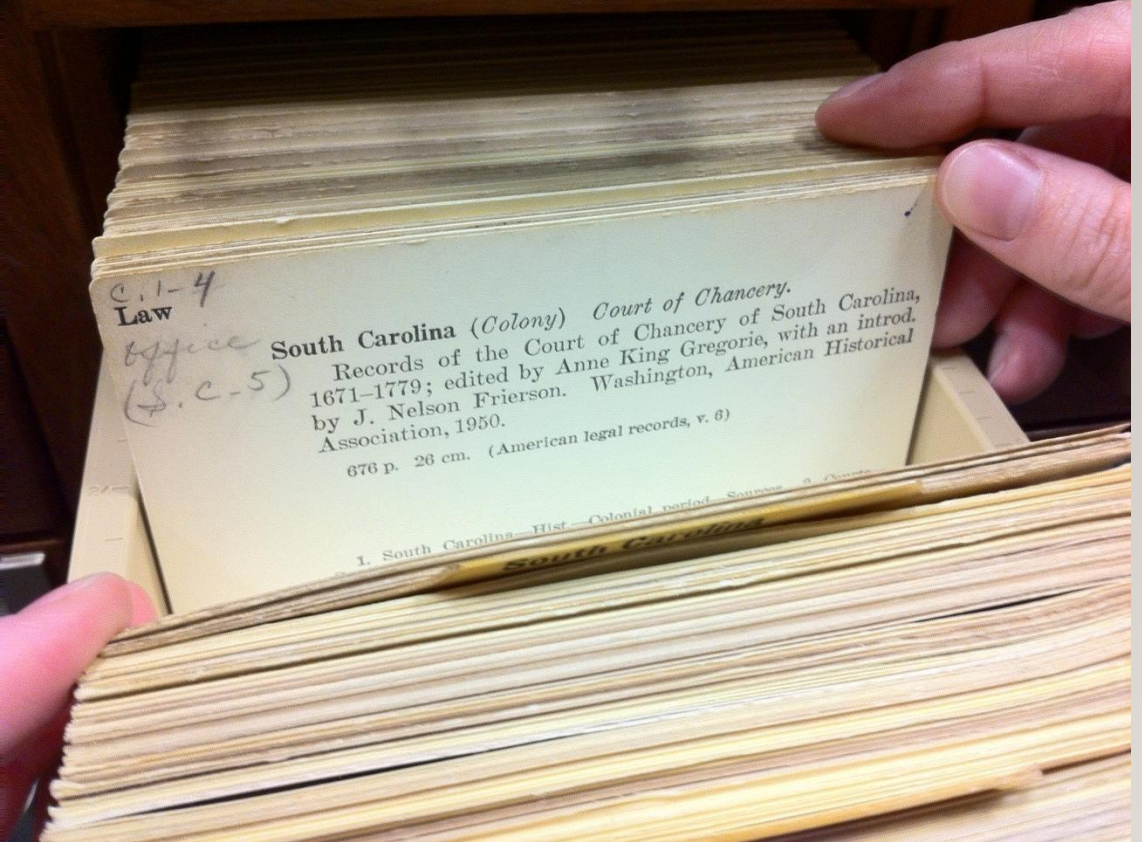 c.1-4
Law
office
(S.C-5)
South Carolina (Colony) Court of Chancery.
Records of the Court of Chancery of South Carolina,
1671–1779; edited by Anne King Gregorie, with an introd.
by J. Nelson Frierson. Washington, American Historical
Association, 1950.
676 p. 26 cm. (American legal records, v. 6)
1. South Carolina—Hist.—Colonial period—Sources. 2. Courts
South Carolina